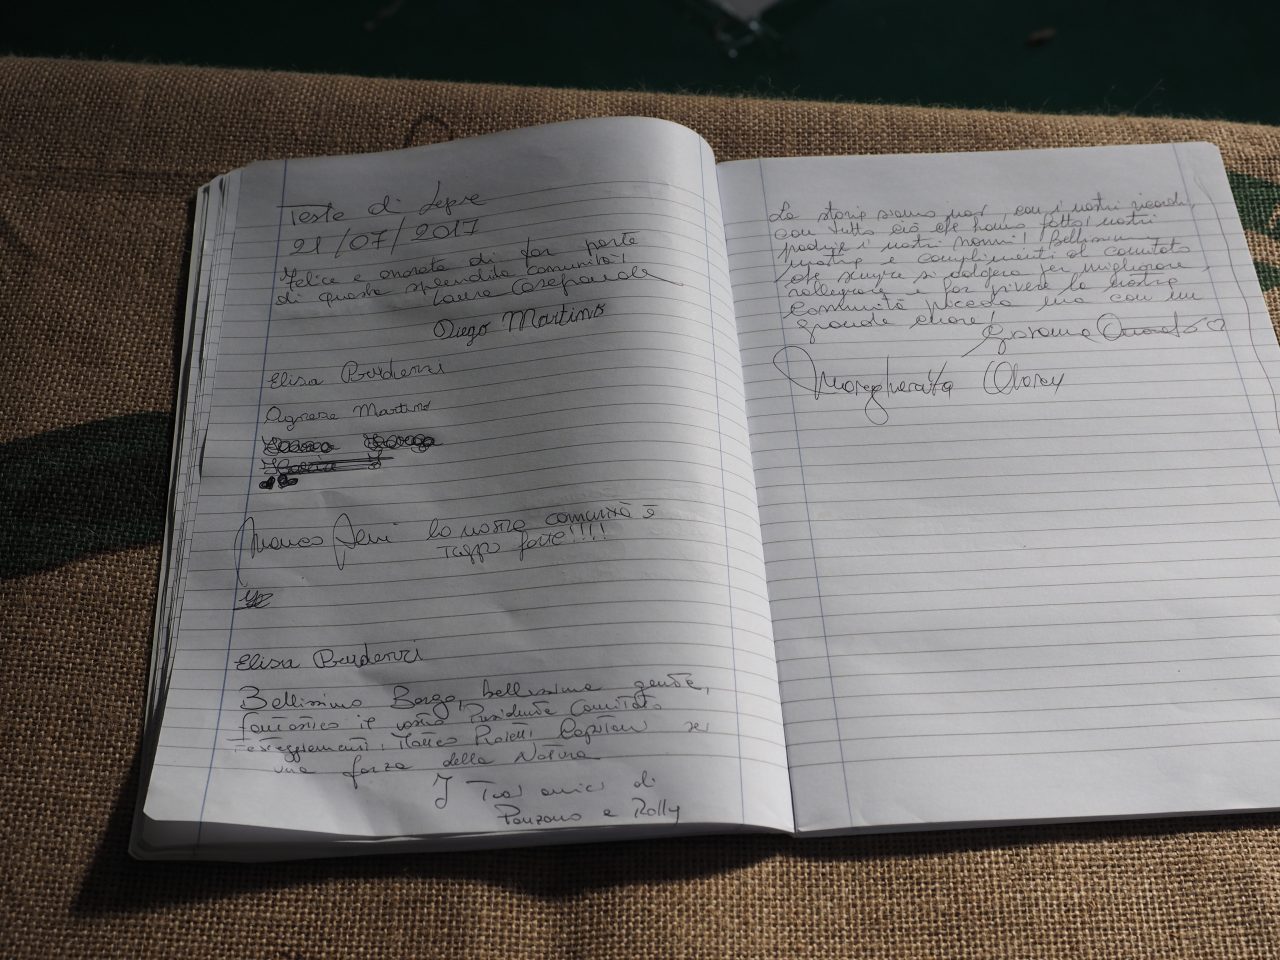 Teste di Lepre
21/07/2017
Felice e onorata di far parte
di questa splendida comunità!
Laura
Diego Martino
Elisa Buderni
Agnese Martino
Marco la nostra comunità è
troppo forte!!!!
Elisa Buderni
Bellissimo Borgo, bellissima gente,
fantastico il vostro Presidente Comitato
Festeggiamenti, Marco Proietti sei
una forza della Natura
I Tuoi amici di
Ponzano e Rolly
La storia siamo noi, con i nostri ricordi,
con tutto ciò che hanno fatto i nostri
padri e i nostri nonni! Bellissima
mostra e complimenti al comitato
che sempre si adopera per migliorare,
rallegrare e far vivere la nostra
Comunità piccola ma con un
grande cuore!
Giovanna
Margherita